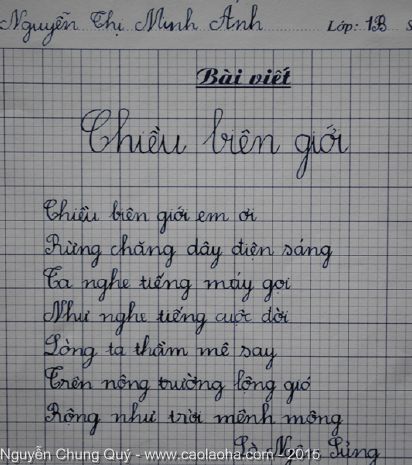 Nguyễn Thị Minh Ánh Lớp: 1B S
Bài viết
Chiều biên giới
Chiều biên giới em ơi
Rừng chăng dây điện sáng
Ta nghe tiếng máy gọi
Như nghe tiếng cuộc đời
Lòng ta thầm mê say
Trên nông trường lộng gió
Rộng như trời mênh mông
Lò Ngân Sủng
Nguyễn Chung Quý - www.caolaoha.com - 2015